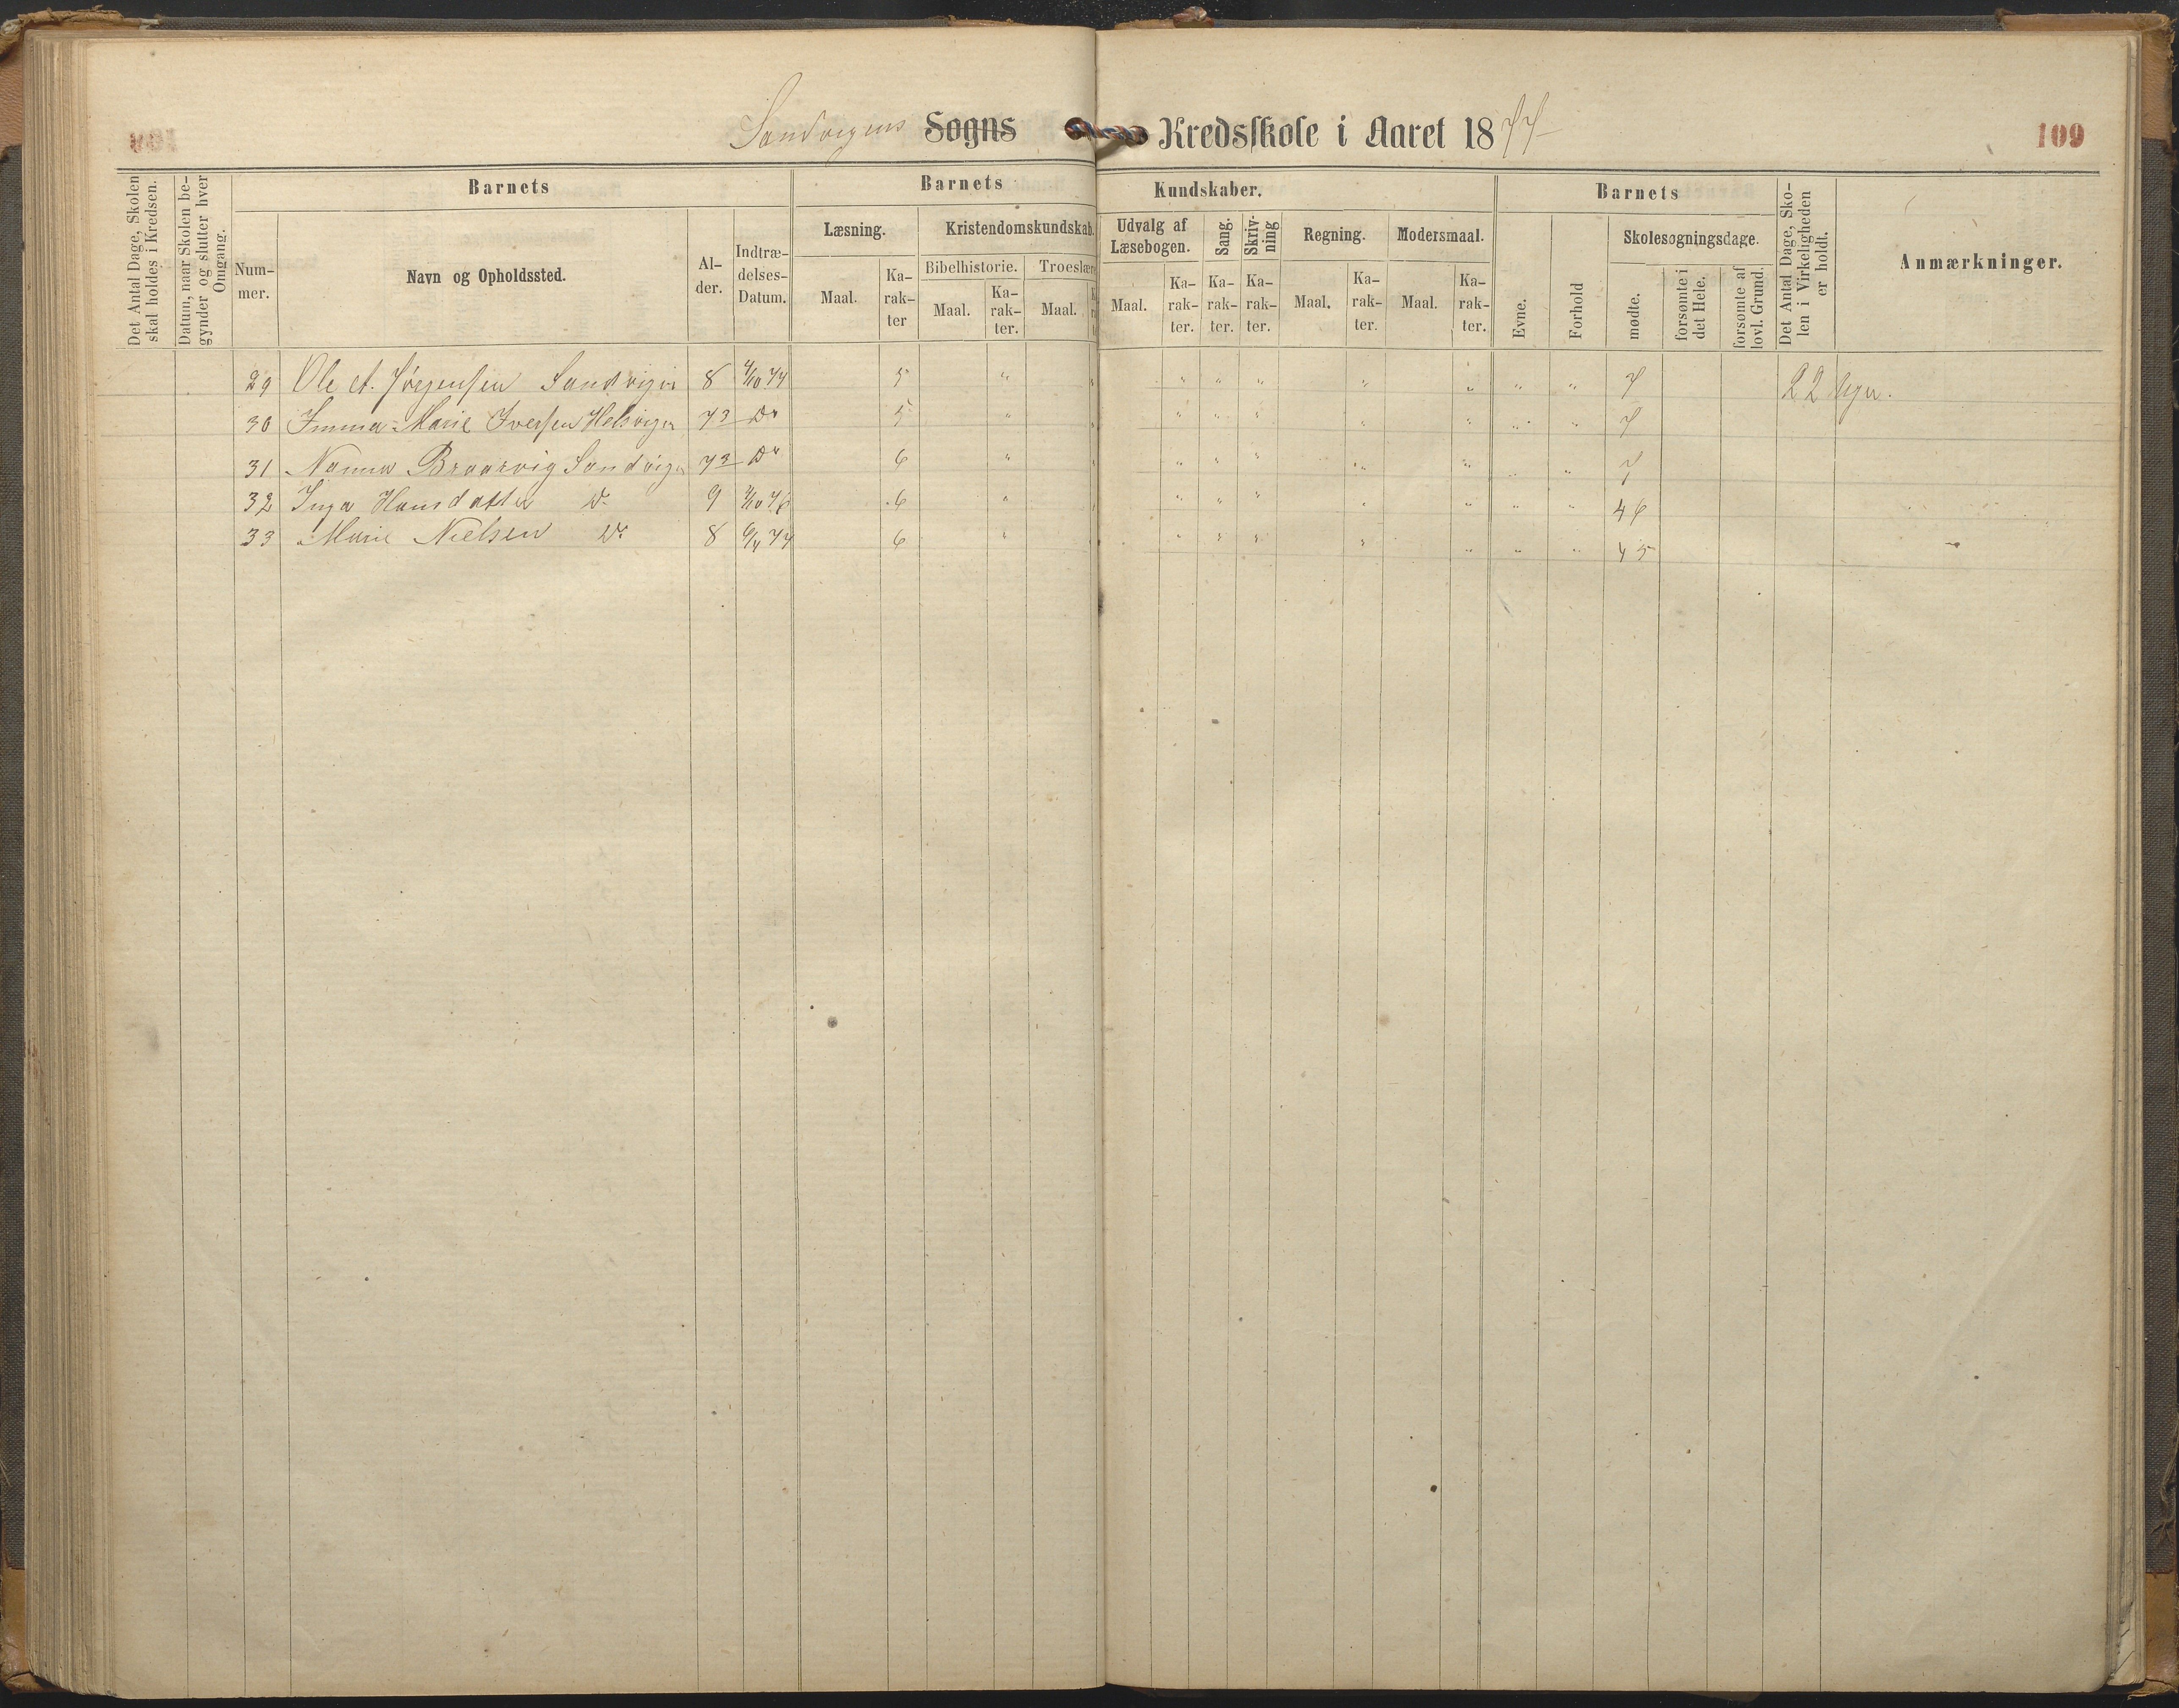 Sandvigens Sogns Kredsskole i Aaret 1877
109
Det Antal Dage, Skolen skal holdes i Kredsen.
Datum, naar Skolen begynder og slutter hver Omgang.
Barnets
Nummer.
Navn og Opholdssted.
Alder.
Indtrædelses-Datum.
Barnets Kundskaber.
Læsning.
Maal.
Karakter
Kristendomskundskab.
Bibelhistorie.
Maal.
Karakter.
Troeslære
Maal.
Udvalg af Læsebogen.
Maal.
Karakter.
Sang.
Karakter.
Skrivning
Karakter.
Regning.
Maal.
Karakter.
Modersmaal.
Maal.
Karakter.
Barnets
Evne.
Forhold
Skolesøgningsdage.
mødte.
forsømte i det Hele.
forsømte af lovl. Grund.
Det Antal Dage, Skolen i Virkeligheden er holdt.
Anmærkninger.
29 Ole A. Jörgensen Sandvigen 8 4/10 77 5 " " " " " " " " " 7 22 Uger.
30 Imma Marie Iversen Helsvigen 7½ Do 5 " " " " " " " " " 7
31 Nanna Braarvig Sandvigen 7½ Do 6 " " " " " " " " " 7
32 Inga Hansdatter Do 9 6 " " " " " " " " " 46
33 Marie Nielsen Do 8 6/4 77 6 " " " " " " " " " 45